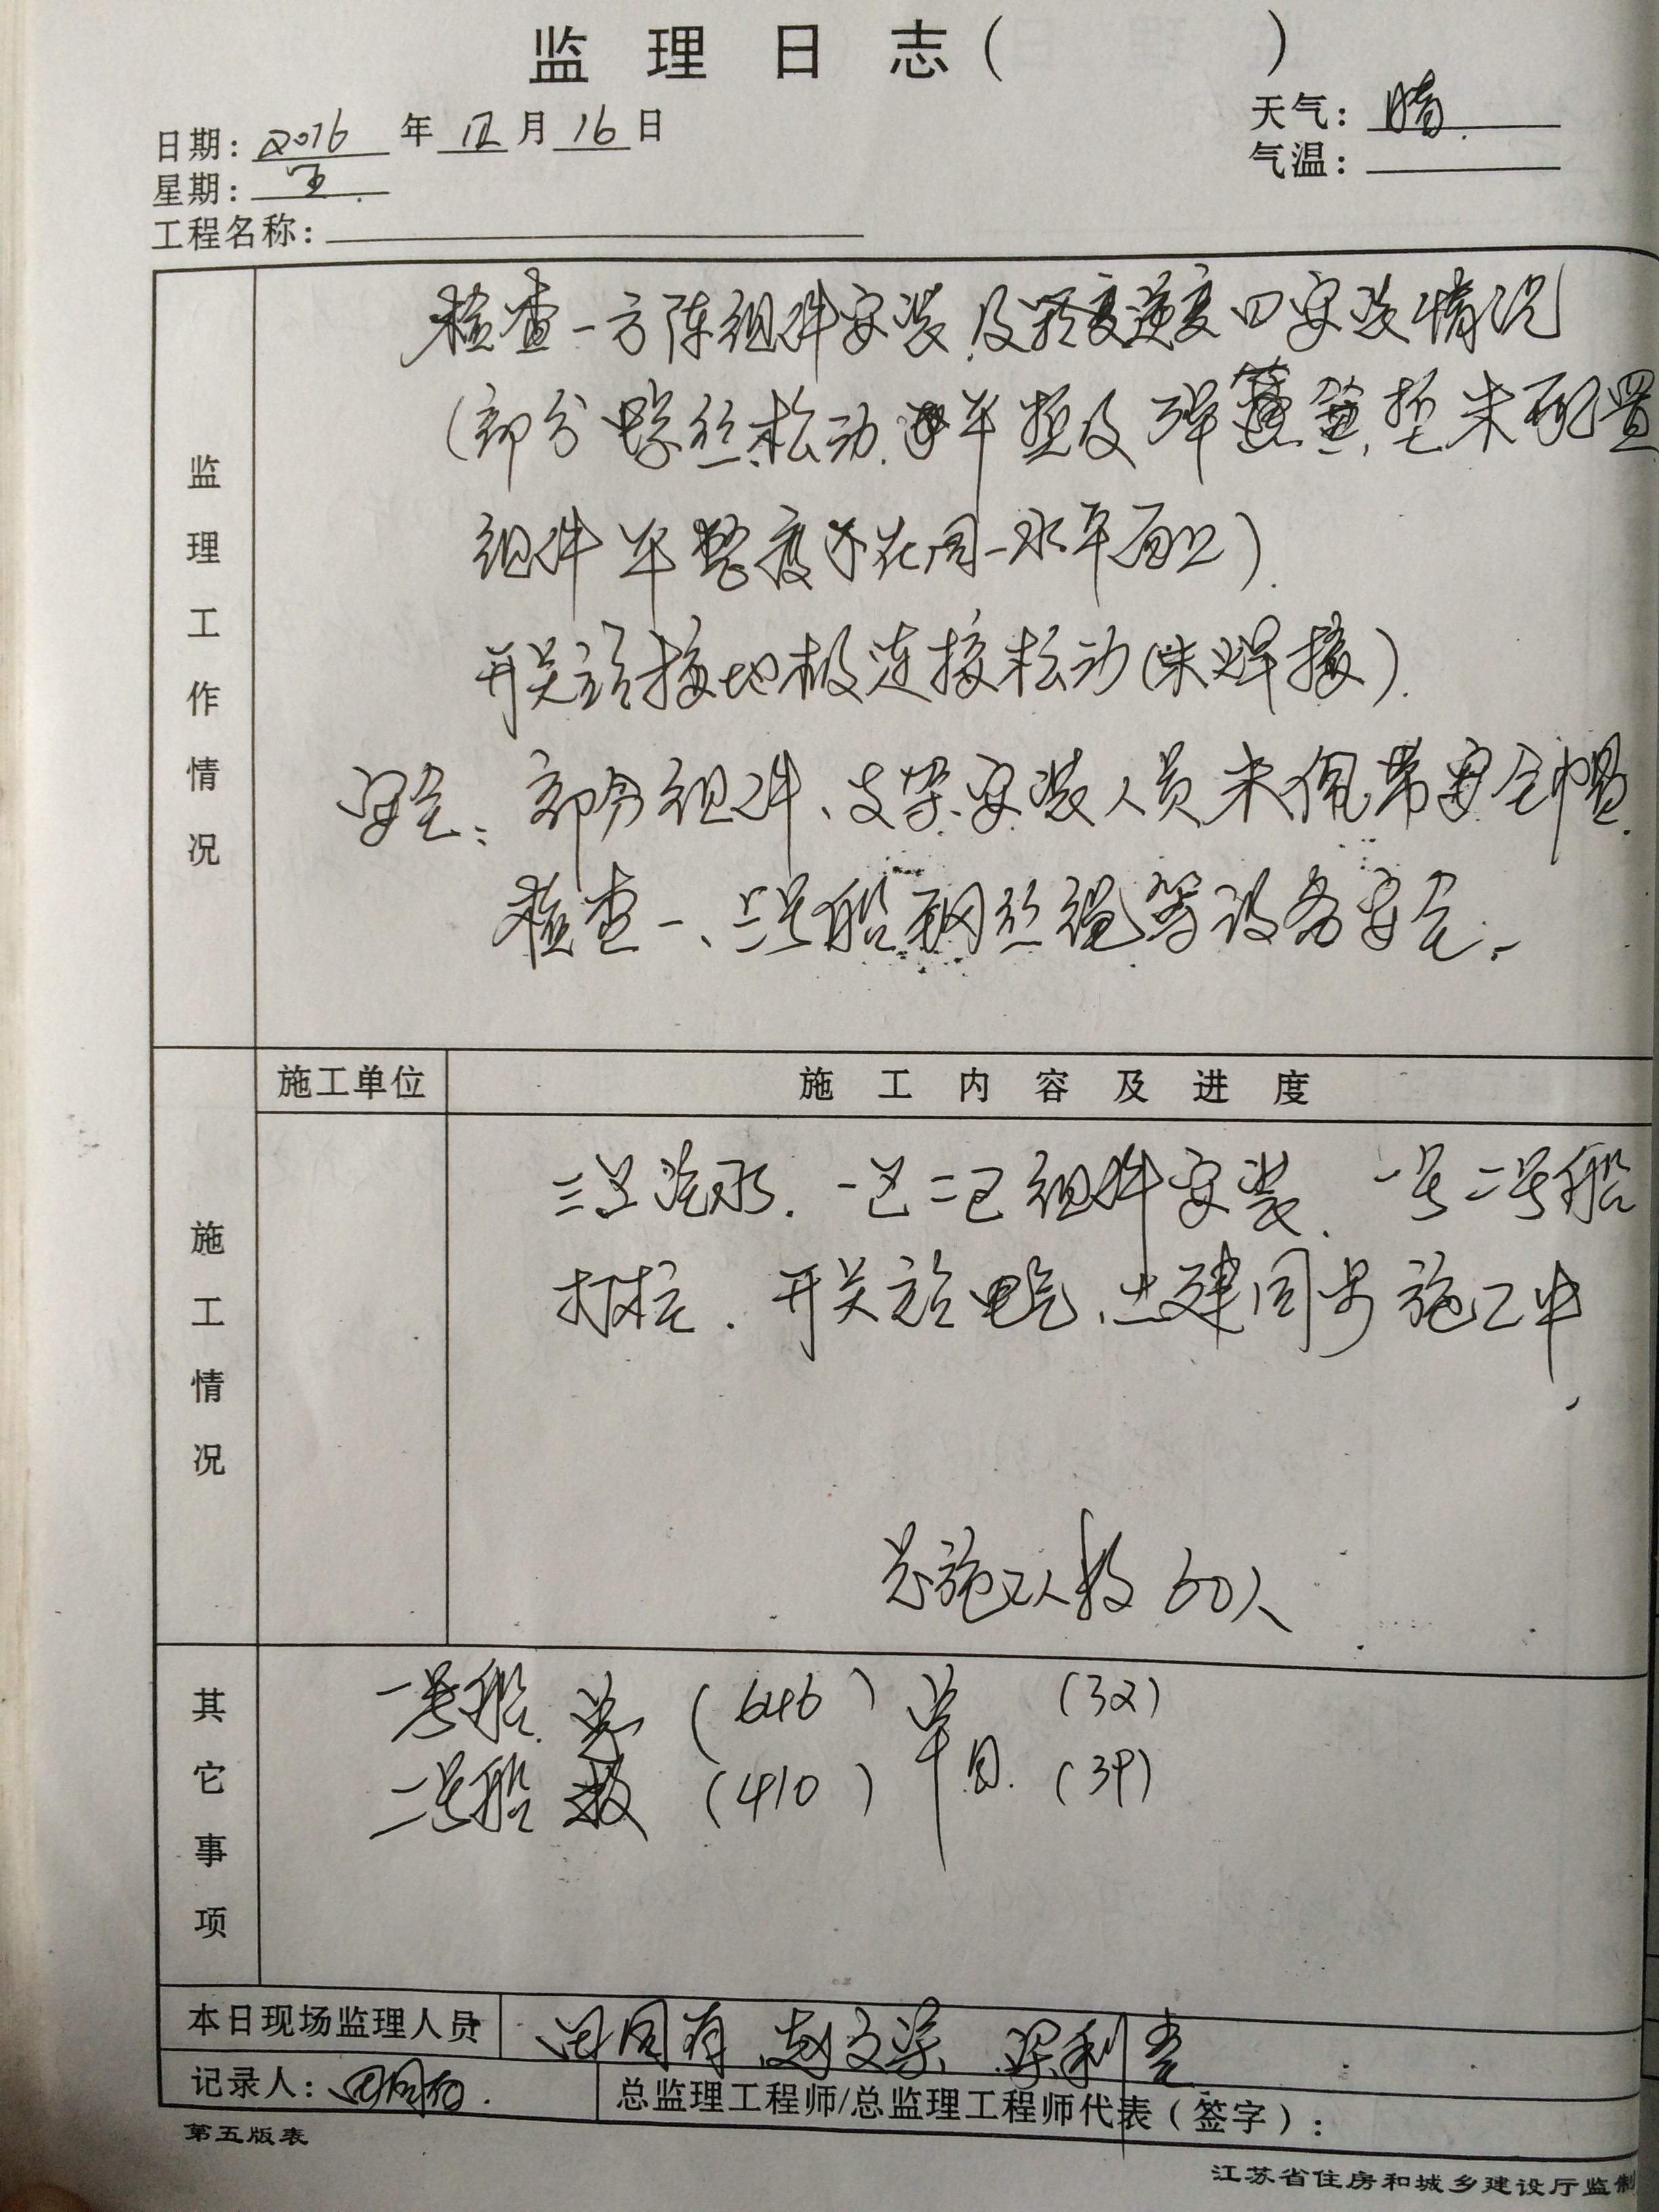 监理日志（ ）
日期：2016年12月16日 天气：晴.
星期：五. 气温：
工程名称：
监理工作情况
检查一方阵组件安装及 安装情况
(部分螺丝松动.平垫及弹簧垫未配置
组件平整度不在同一水平面上).
开关站接地极连接松动(未焊接).
安全：部分组件、支架安装人员未佩带安全帽.
检查一、二号船钢丝绳等设备安全.
施工情况
施工单位 施工内容及进度
三区 水. 一区二区组件安装. 一号二号船
打桩. 开关站电气、土建同步施工中
总施工人数 60人
其它事项
一号船 总 (646) 单 (32)
二号船 数 (410) 日. (39)
本日现场监理人员 田同有 赵文梁 梁利
记录人：田同有. 总监理工程师/总监理工程师代表（签字）：
第五版表
江苏省住房和城乡建设厅监制